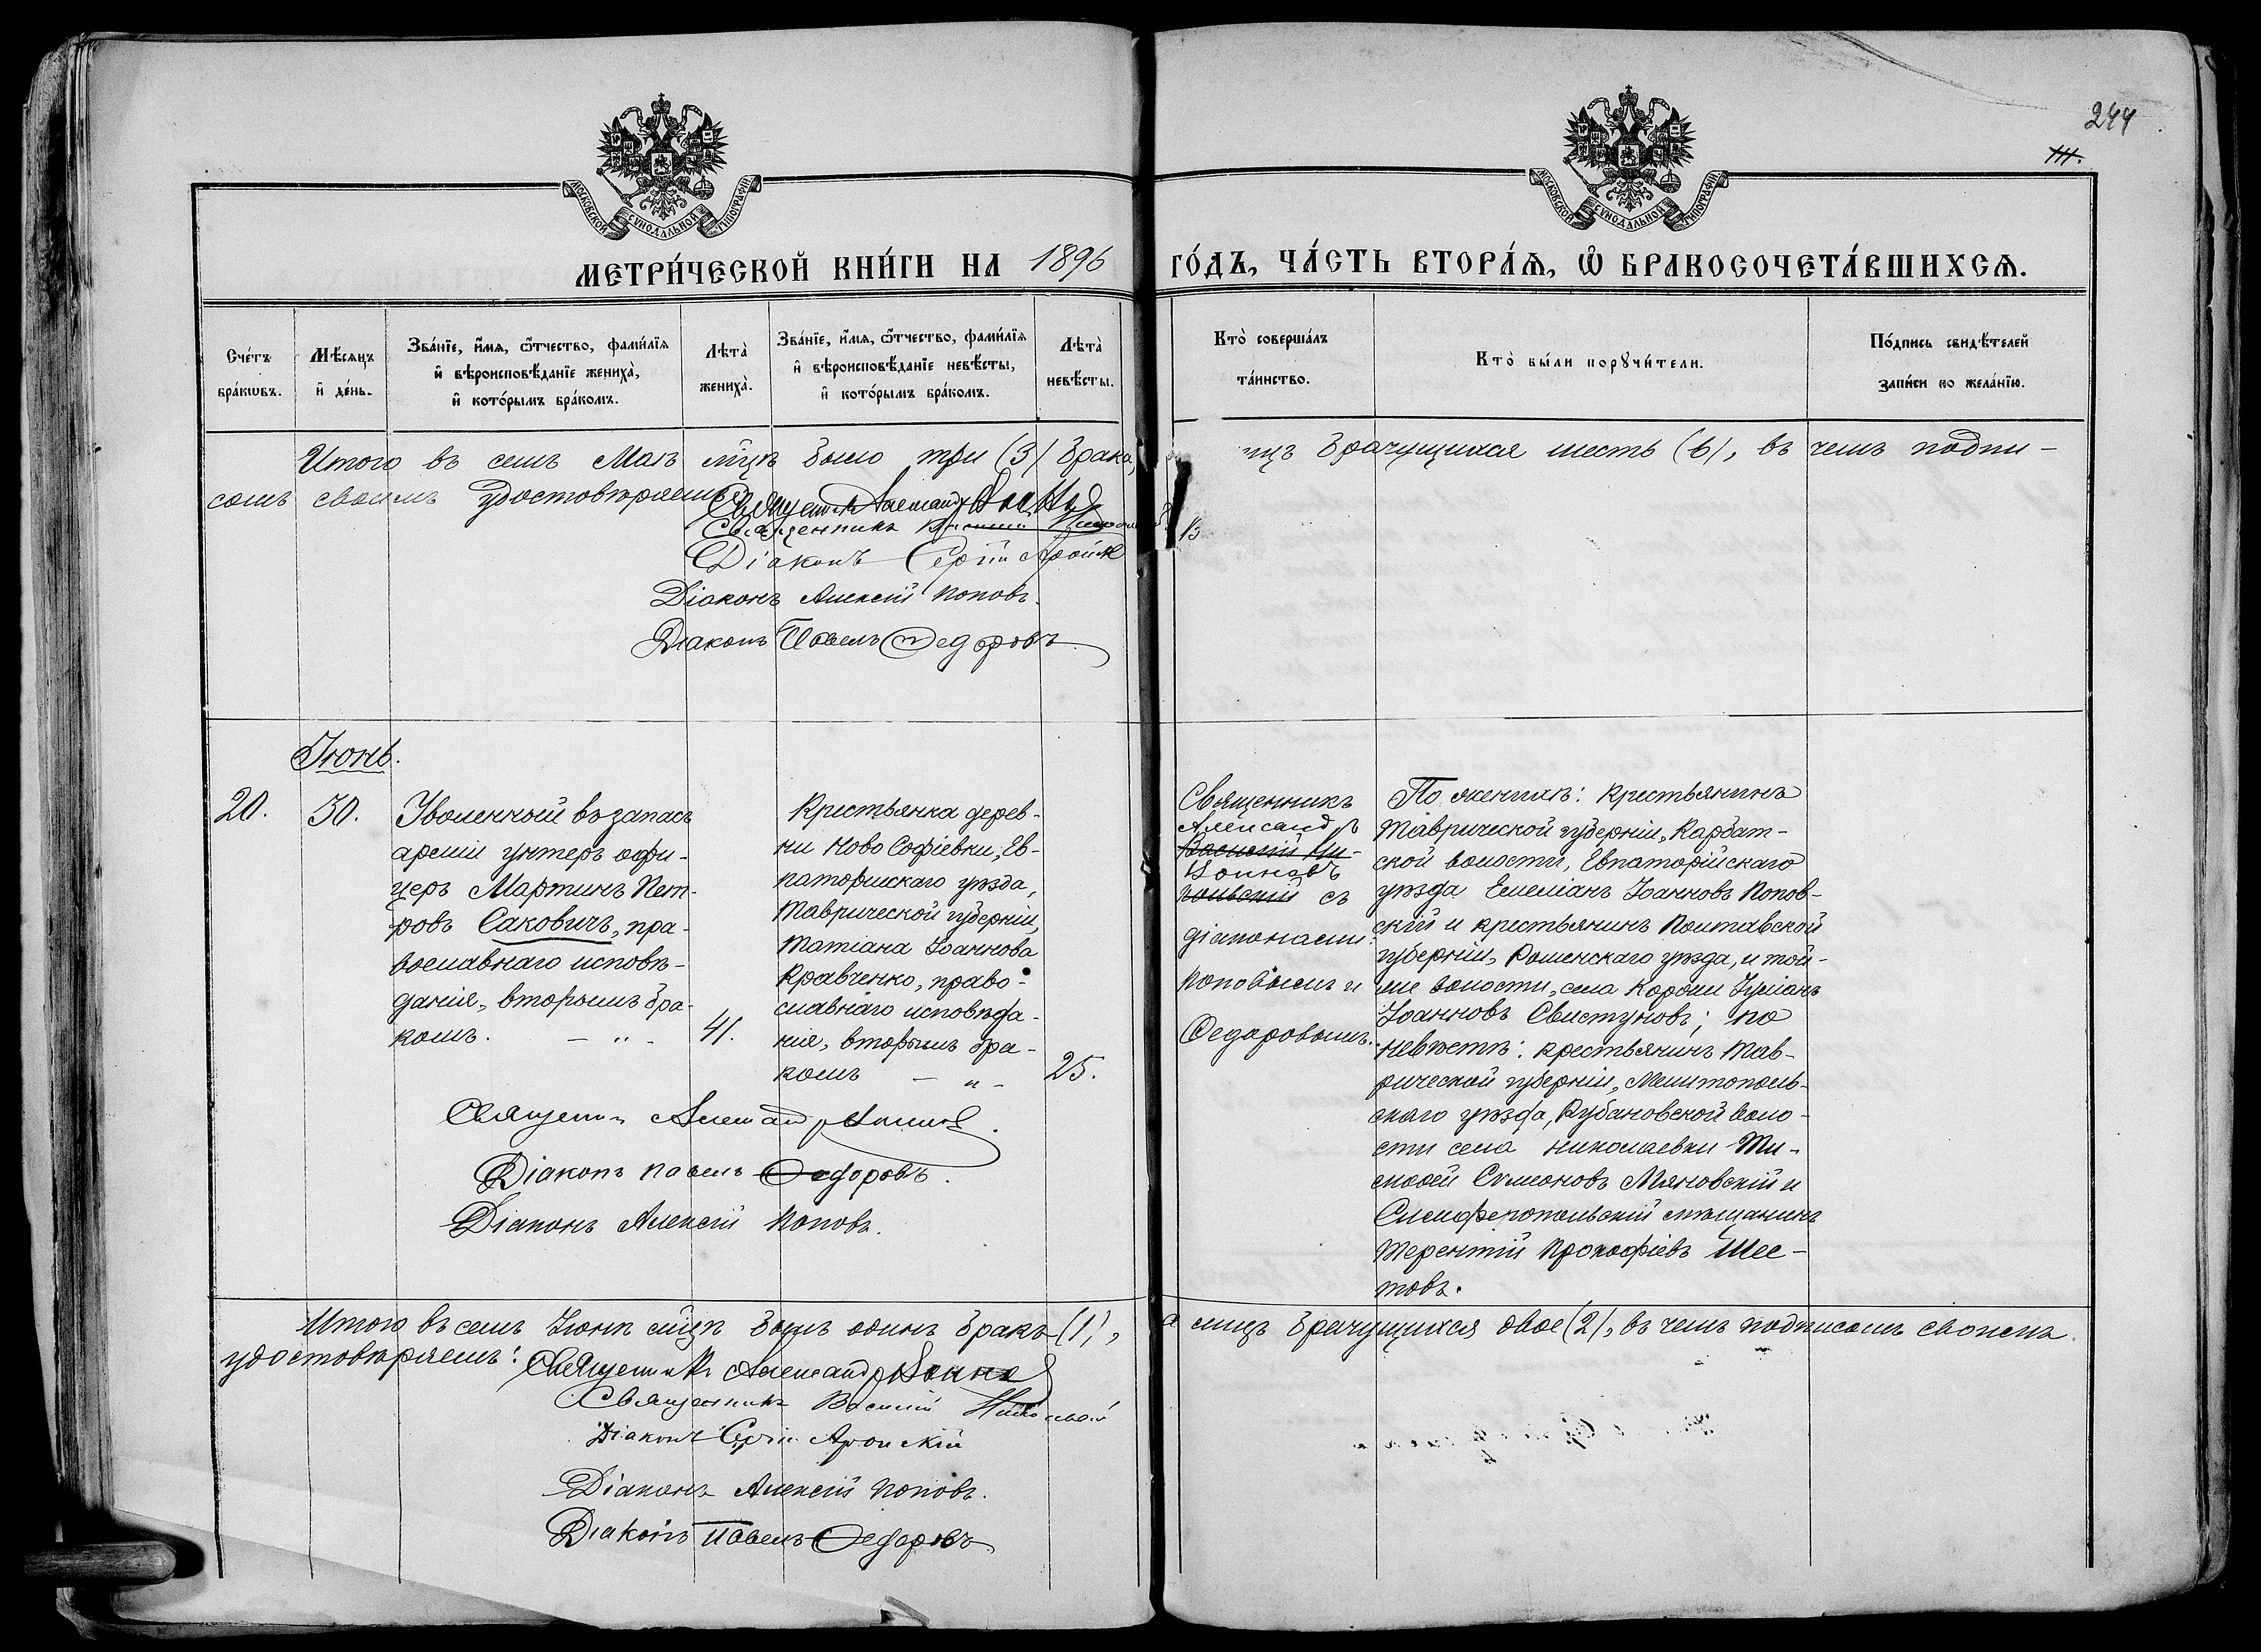 244
111.
МОСКОВСКОЙ СѴНОДАЛЬНОЙ ТИПОГРАФІИ
МОСКОВСКОЙ СѴНОДАЛЬНОЙ ТИПОГРАФІИ
МЕТРИ́ЧЕСКОЙ КНИ́ГИ НА 1896 ГО́ДЪ, ЧА́СТЬ ВТОРА́Ѧ, Ѡ БРАКОСОЧЕТА́ВШИХСѦ.
Сче́тъ
бра́кѡвъ.
Мѣ́сѧцъ
и҆ де́нь.
Зва́нїе, и҆́мѧ, ѻ҆́тчество, фами́лїѧ
и҆ вѣроисповѣ́данїе жениха̀,
и҆ кото́рымъ бра́комъ.
Лѣта̀
жениха̀.
Зва́нїе, и҆́мѧ, ѻ҆́тчество, фами́лїѧ
и҆ вѣроисповѣ́данїе невѣ́сты,
и҆ кото́рымъ бра́комъ.
Лѣта̀
невѣ́сты.
Кто̀ соверша́лъ
та́инство.
Кто̀ бы́ли порꙋчи́тели.
По́дпись свидѣ́телей
за́писи по жела́нїю.
Итого въ семъ Маѣ мѣцѣ было три (3) брака, лицъ брачущихся шесть (6), въ чемъ подпи-
сомъ своимъ удостовѣряемъ:
Священникъ Александръ
Священникъ Василій
Діаконъ Сергій
Діаконъ Алексій Поповъ.
Діаконъ Павелъ Ѳедоровъ.
Іюнь.
20.
30.
Уволенный въ запасъ
арміи унтеръ офи-
церъ Мартинъ Пет-
ровъ Саковичъ, пра-
вославнаго исповѣ-
данія, вторымъ бра-
комъ. — „ -
41.
Крестьянка дерев-
ни Ново Софіевки, Ев-
паторійскаго уѣзда,
Таврической губерніи,
Татіана Іоаннова
Кравченко, право-
славнаго исповѣда-
нія, вторымъ бра-
комъ — „ -
25.
Священникъ
Александръ
Василій Ни-
Вонновъ
польскій съ
діаконами:
Поповымъ и
Ѳедоровымъ.
По женихѣ: крестьянинъ
Таврической губерніи, Карбат-
ской волости, Евпаторійскаго
уѣзда Емеліанъ Іоанновъ Попов-
скій и крестьянинъ Полтавской
губерніи, Роменскаго уѣзда, и той-
же волости, села Коровы Іуліанъ
Іоанновъ Свистуновъ; по
невѣстѣ: крестьянинъ Тав-
рической губерніи, Мелитополь-
скаго уѣзда, Рубановской воло-
сти села Николаевки Ти-
моѳей Симеоновъ Мяновскій и
Симферопольскій мѣщанинъ
Терентій Прокофіевъ Шес-
товъ.
Священникъ Александръ
Діаконъ Павелъ Ѳедоровъ.
Діаконъ Алексій Поповъ.
Итого въ семъ Іюнѣ мѣцѣ былъ одинъ бракъ (1), а лицъ брачущихся двое (2), въ чемъ подписомъ своимъ
удостовѣряемъ:
Священникъ Александръ
Священникъ Василій
Діаконъ Сергій
Діаконъ Алексій Поповъ.
Діаконъ Павелъ Ѳедоровъ.